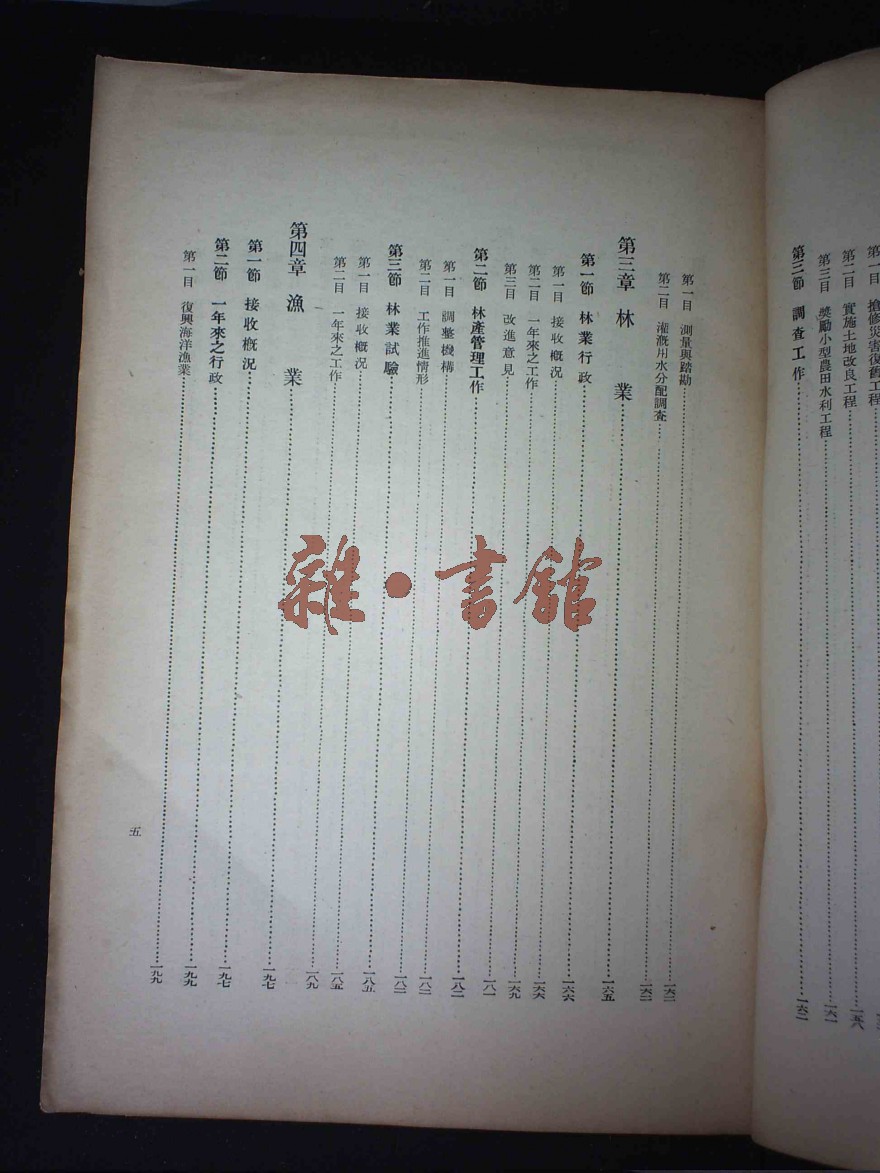 第一目 搶修災害復舊工程
第二目 實施土地改良工程……一五八
第三目 獎勵小型農田水利工程……一六一
第三節 調查工作……一六二
第一目 測量與踏勘……一六二
第二目 灌溉用水分配調查……一六二
第三章 林 業……一六五
第一節 林業行政……一六六
第一目 接收概況……一六六
第二目 一年來之工作……一六六
第三目 改進意見……一六九
第二節 林產管理工作……一八一
第一目 調整機構……一八二
第二目 工作推進情形……一八二
第三節 林業試驗……一八二
第一目 接收概況……一八五
第二目 一年來之工作……一八五
第四章 漁 業……一八九
第一節 接收概況……一九七
第二節 一年來之行政……一九七
第一目 復興海洋漁業……一九九
五
雜·書館